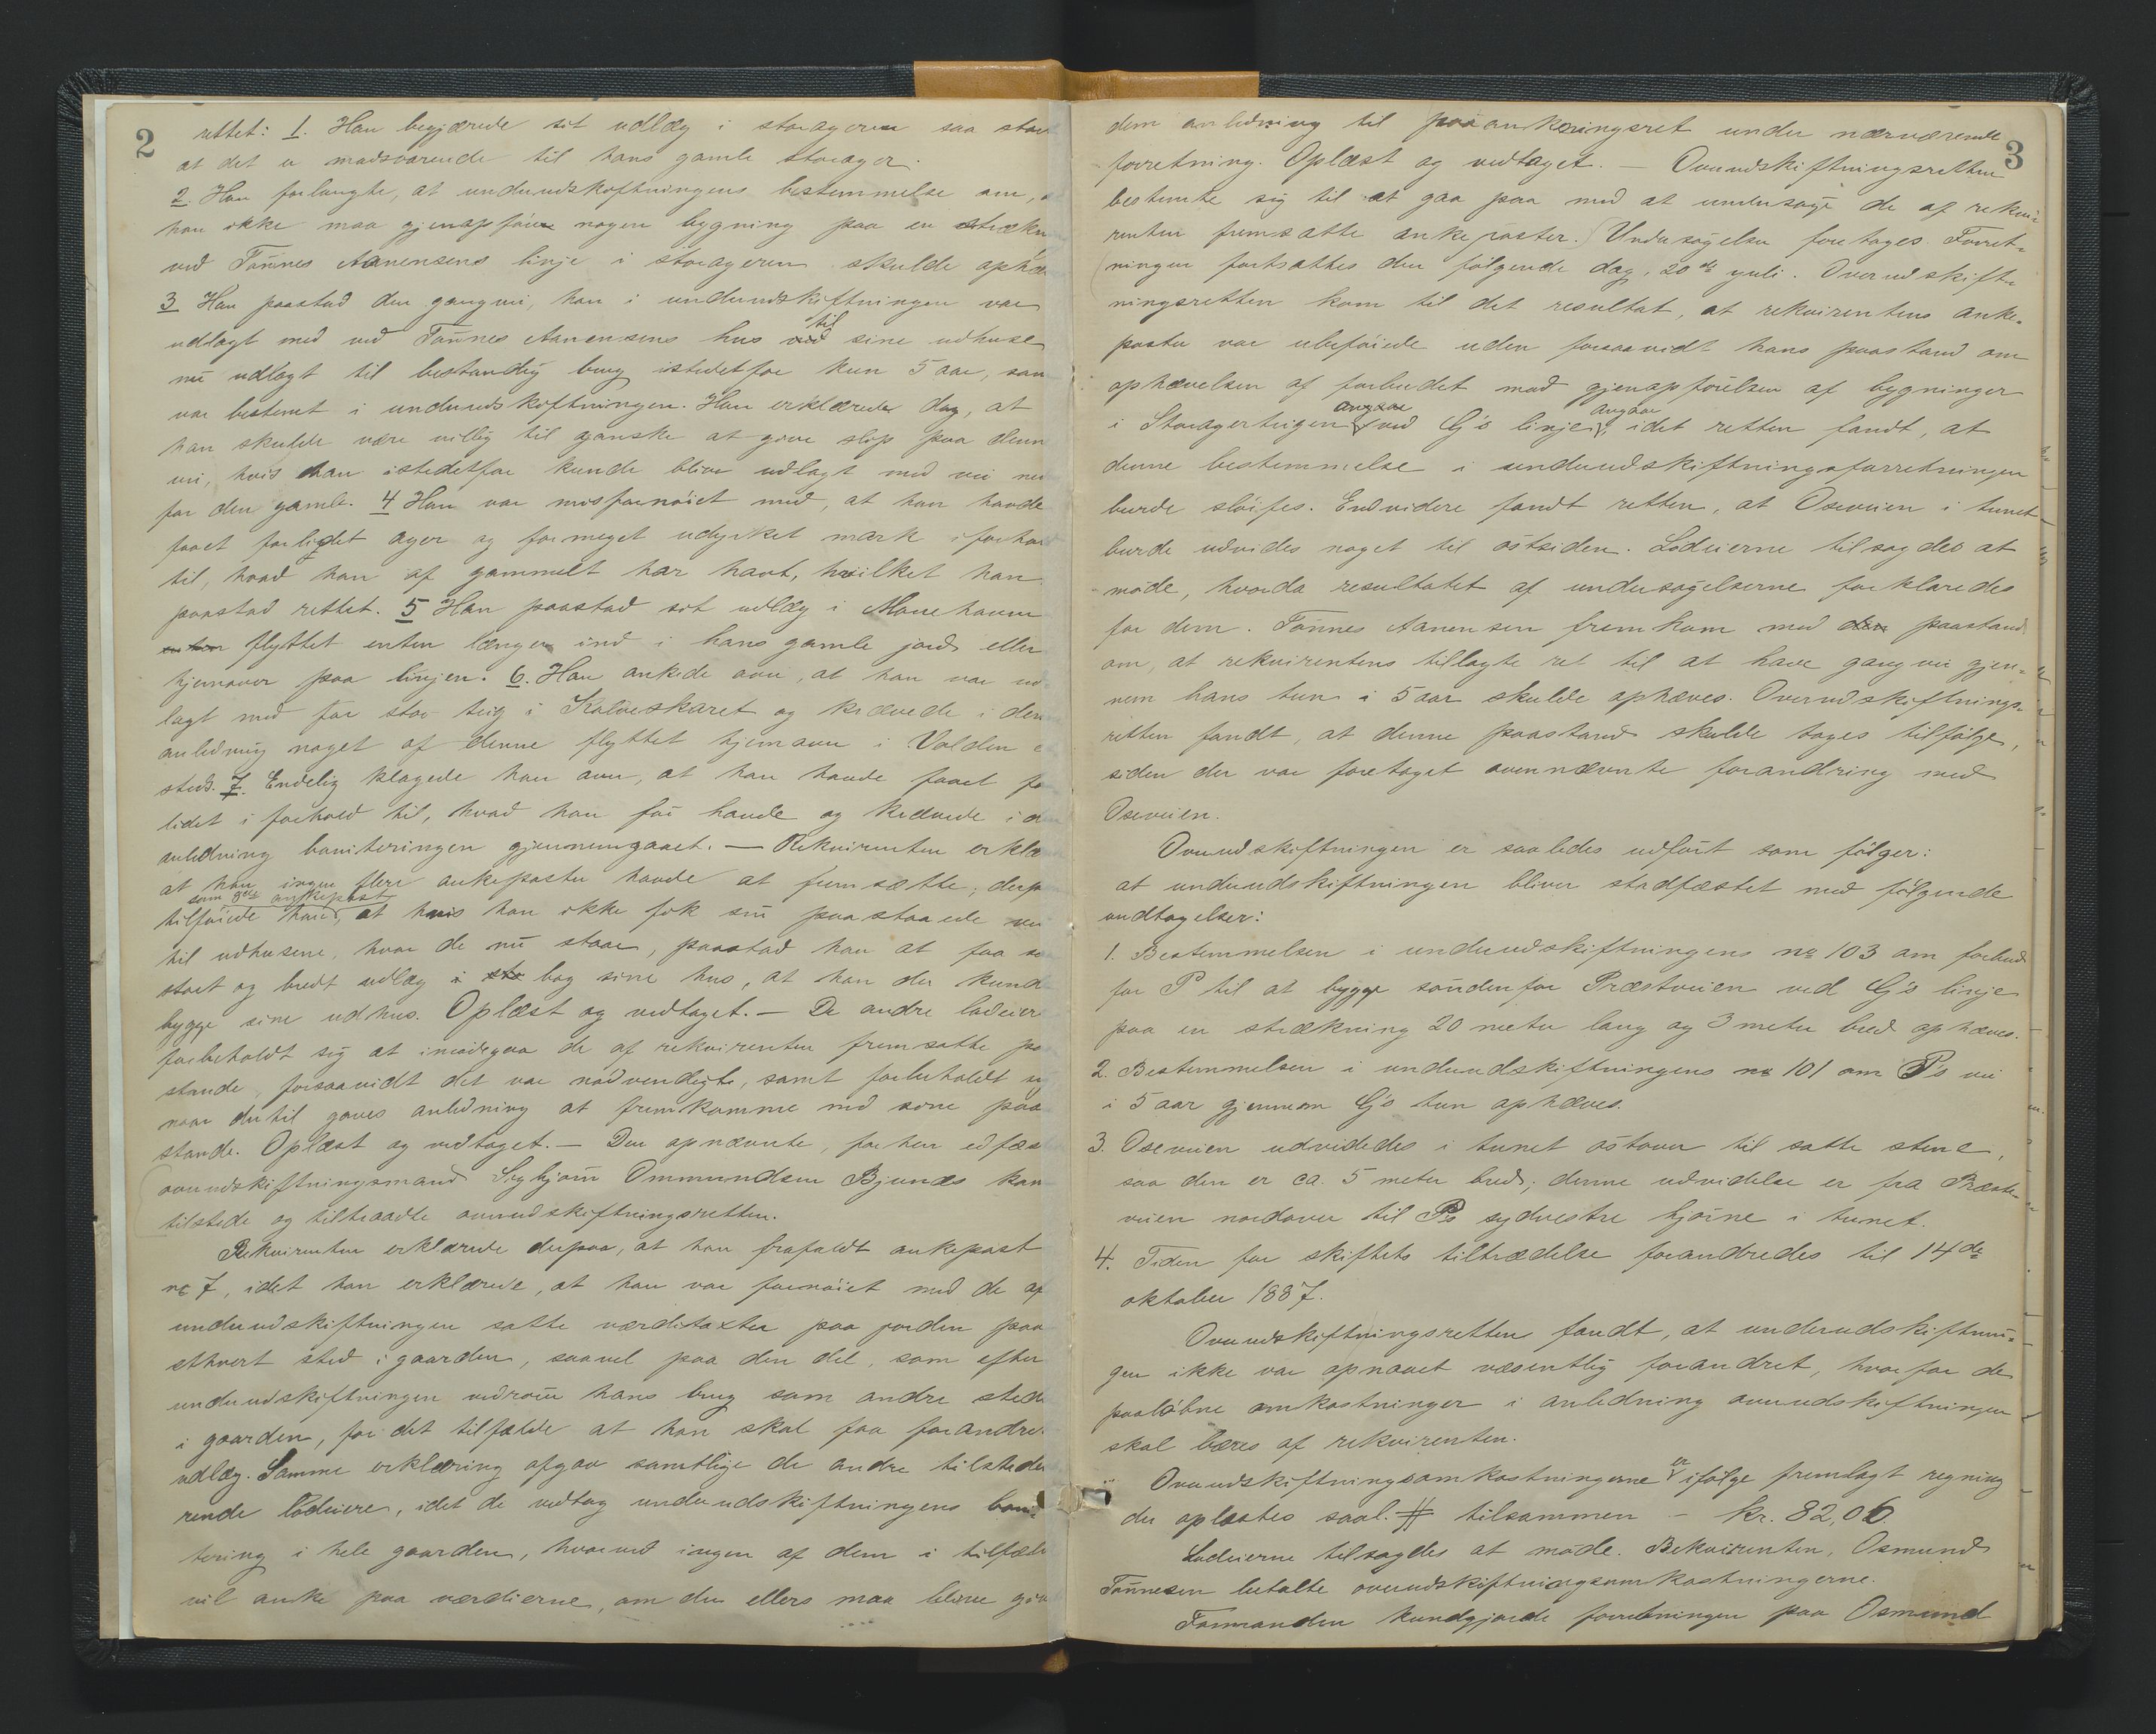 2
rettet: 1. Han begjærede sit udlæg i storageren saa stor
at det er modsvarende til hans gamle storager.
2. Han forlangte, at underudskiftningens bestemmelse om, a
han ikke maa gjenopføre nogen bygning paa en strækn
ved Tönnes Aanensens linje i storageren skulde ophæ
3 Han paastod den gangvei, han i underudskiftningen var
udlagt med ved Tönnes Aanensens hus ved til sine udhuse
nu udlagt til bestandig brug istedetfor kun 5 aar, som
var bestemt i underudskiftningen. Han erklærede dog, at
han skulde være villig til ganske at give slip paa denn
vei, hvis han istedetfor kunde blive udlagt med vei ne
for den gamle. 4 Han var misfornöiet med, at han havde
faaet forlidet ager og formeget udyrket mark i forhol
til, hvad han af gammelt har havt, hvilket han
paastod rettet. 5 Han paastod sit udlæg i Monehaven
enten flyttet enten længer ind i hans gamle jord eller
hjemover paa linjen. 6. Han ankede over, at han var ud
lagt med for stor teig i Kalveskaret og krævede i den
anledning noget af denne flyttet hjemover i Valden e
sted. 7. Endelig klagede han over, at han havde faaet fo
lidet i forhold til, hvad han för havde og krævede i d
anledning boniteringen gjennemgaaet. — Rekvirenten erklæ
at han ingen flere ankeposter havde at fremsætte; derp
som 8de ankepost
tilföiede han, at hvis han ikke fik sin paastaaede vei
til udhusene, hvor de nu staar, paastod han at faa sa
stort og bredt udlæg i sto bag sine hus, at han der kund
bygge sine udhus. Oplæst og vedtaget. — De andre lodeier
forbeholdt sig at imödegaa de af rekvirenten fremsatte pa
stande, forsaavidt det var nödvendigt, samt forbeholdt sig
naar dertil gaves anledning at fremkomme med sine paa
stande. Oplæst og vedtaget. — Den opnævnte, forhen edfæs
overudskiftningsmand Sigbjörn Ommundsen Bjunes kom
tilstede og tiltraadte overudskiftningsretten.
Rekvirenten erklærede derpaa, at han frafaldt ankepost
no 7, idet han erklærede, at han var fornöiet med de af
underudskiftningen satte værditaxter paa jorden paa
ethvert sted i gaarden, saavel paa den del, som efter
underudskiftningen vedrörer hans brug som andre sted
i gaarden, for det tilfælde at han skal faa forandre
udlæg. Samme erklæring afgav samtlige de andre tilstede
rende lodeiere, idet de vedtog underudskiftningens boni-
tering i hele gaarden, hvorved ingen af dem i tilfælde
vil anke paa værdierne, om der ellers maa blive giv
3
dem anledning til paaankningsret under nærværende
forretning. Oplæst og vedtaget. — Overudskiftningsretten
bestemte sig til at gaa paa med at undersöge de af rekvi-
renten fremsatte ankeposter. Undersögelsen foretoges. Forret-
ningen fortsattes den fölgende dag, 20de juli. Overudskift-
ningsretten kom til det resultat, at rekvirentens anke-
poster var ubeföiede uden forsaavidt hans paastand om
ophævelsen af forbudet mod gjenopförelsen af bygninger
i Storagerteigen angaar ved G's linje angaar, idet retten fandt, at
denne bestemmelse i underudskiftningsforretningen
burde slöifes. Endvidere fandt retten, at Oseveien i tunet
burde udvides noget til östsiden. Lodeierne tilsagdes at
möde, hvorda resultatet af undersögelserne forklaredes
for dem. Tönnes Aanensen fremkom med den paastand
om, at rekvirentens tillagte ret til at have gangvei gjen-
nem hans tun i 5 aar skulde ophæves. Overudskiftnings-
retten fandt, at denne paastand skulde tages tilfölge,
siden der var foretaget ovennævnte forandring med
Oseveien.
Overudskiftningen er saaledes udfört som fölger:
at underudskiftningen bliver stadfæstet med fölgende
undtagelser:
1. Bestemmelsen i underudskiftningens no 103 om forbud
for P til at bygge söndenfor Præstveien ved G's linje
paa en strækning 20 meter lang og 3 meter bred ophæves.
2. Bestemmelsen i underudskiftningens no 101 om P's vei
i 5 aar gjennem G's tun ophæves.
3. Oseveien udvidedes i tunet östover til satte stene,
saa den er ca. 5 meter bred; denne udvidelse er fra Præst-
veien nordover til P's sydvestre hjörne i tunet.
4. Tiden for skiftets tiltrædelse forandredes til 14de
oktober 1887.
Overudskiftningsretten fandt, at underudskiftnin-
gen ikke var opnaaet væsentlig forandret, hvorfor de
paalöbne omkostninger i anledning overudskiftningen
skal bæres af rekvirenten.
Overudskiftningsomkostningerne er ifölge fremlagt regning
der oplæstes saal. # tilsammen - kr. 82,06.
Lodeierne tilsagdes at möde. Rekvirenten, Osmund
Tönnesen betalte overudskiftningsomkostningerne.
Formanden kundgjorde forretningen paa Osmund